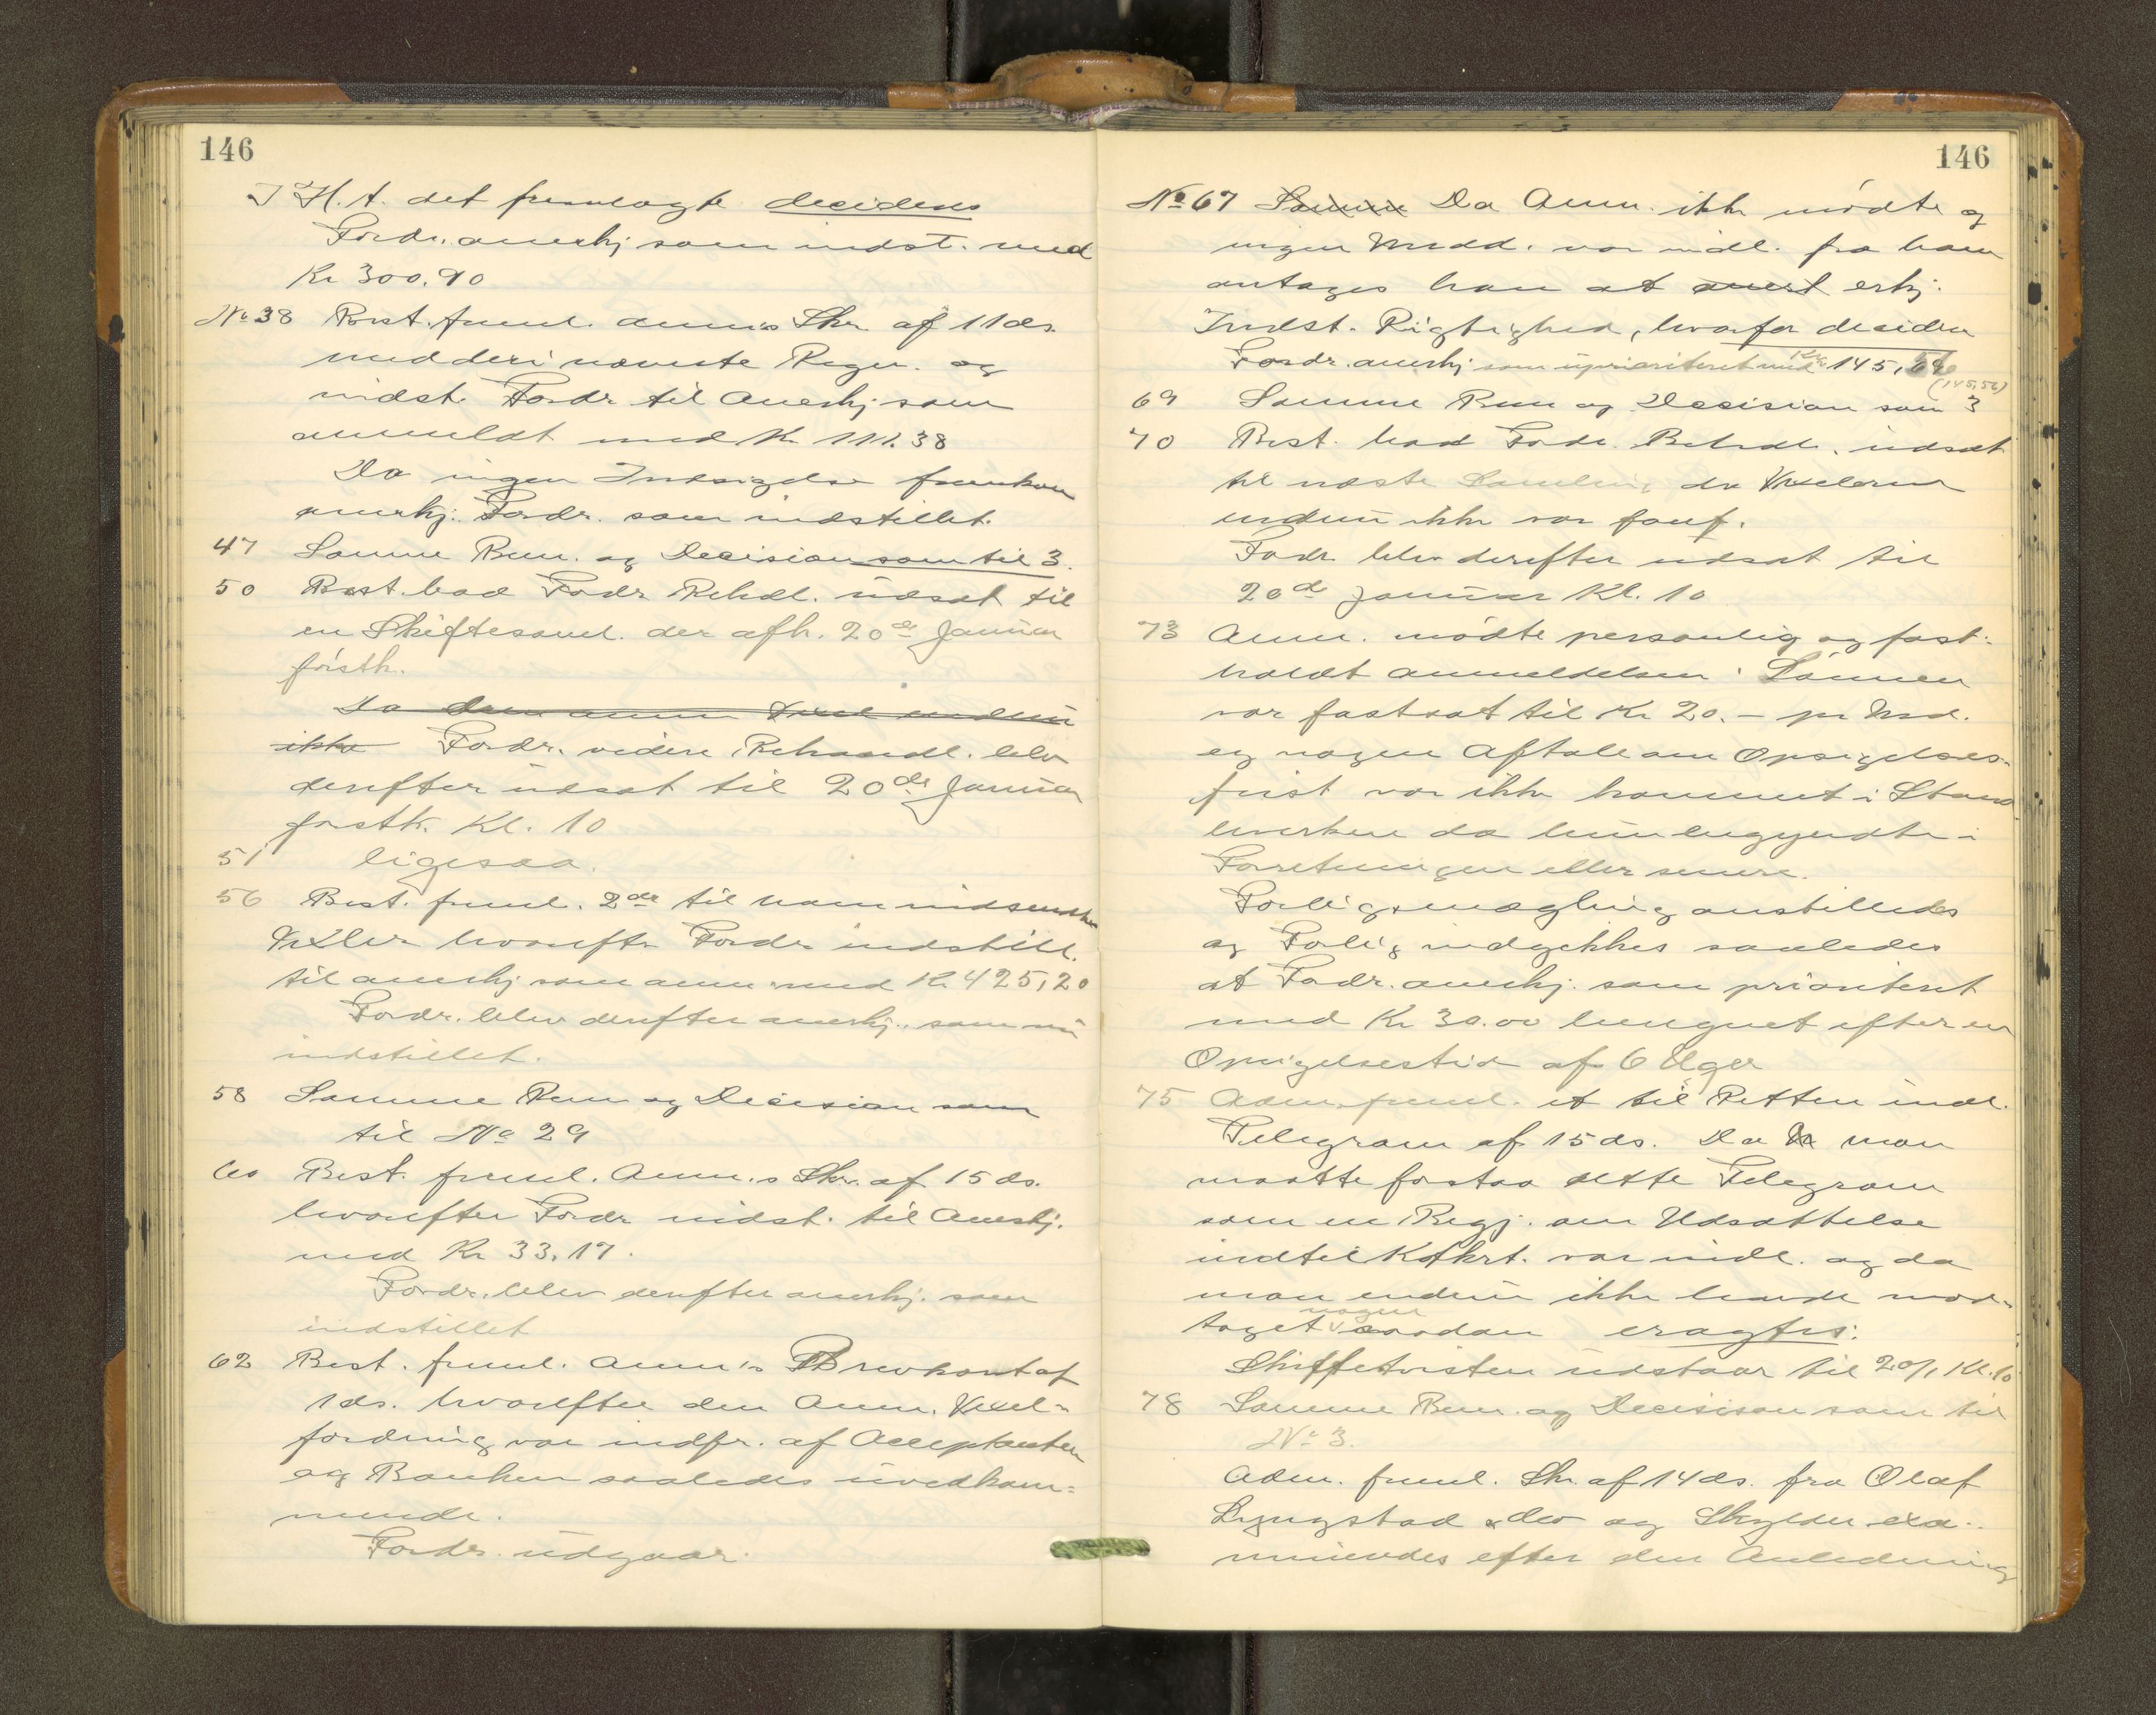 146
I H. t. det fremlagte decideres
Fordr. anerkj som indst. med
Kr 300.90
No 38 Best. freml. Anm.s Skr. af 11 ds.
med deri nævnte Regn. og
indst. Fordr til Anerkj som
anmeldt med Kr 111.38
Da ingen Indsigelse fremkom
anerkj. Fordr. som indstillet.
47 Samme Bem. og Decision som til 3.
50 Best. bad Fordr Behdl. udsat til
en Skiftesaml. der afh. 20de Januar
førstk.
Da den anm Vexel endnu
ikke Fordr. videre Behandl. blev
derefter udsat til 20de Januar
førstk. Kl. 10
51 ligesaa.
56 Best. freml. 2de til ham indsendte
Vexler hvorefter Fordr indstill.
til anerkj som anm. med Kr. 425,20
Fordr. blev derefter anerkj. som nu
indstillet.
58 Samme Bem og Decision som
til No 29
60 Best. freml. Anm.s Skr. af 15 ds.
hvorefter Fordr indst. til Anerkj.
med Kr 33.17.
Fordr. blev derefter anerkj. som
indstillet
62 Best. freml. Anm's Brevkort af
1 ds. hvorefter den Anm. Vexel-
fordring var indfr. af Acceptanten
og Banken saaledes uvedkom-
mende.
Fordr. udgaar.
146
No 67 Samme Da Anm. ikke mødte og
ingen Medd. var indl. fra ham
antages han at erkj.
Indst. Rigtighed, hvorfor decideres
Fordr. anerkj som uprioriteret med Kr 145,56
(145,56)
69 Samme Bem og Decision som 3
70 Best. bad Fordr. Behdl. udsat
til næste Samling da Vexlerne
endnu ikke var forf.
Fordr blev derefter udsat til
20de Januar Kl. 10
73 Anm. mødte personlig og fast-
holdt anmeldelsen. Lønnen
var fastsat til Kr 20.- pr Md.
og nogen Aftale om Opsigelses-
frist var ikke kommet i Stand
hverken da hun begyndte i
Forretningen eller senere.
Forligsmægling anstilledes
og Forlig indgikkes saaledes
at Fordr. anerkj. som prioriteret
med Kr 30.00 beregnet efter en
Opsigelsestid af 6 Uger
75 Adm. freml. et til Retten indl.
Telegram af 15 ds. Da man
maatte forstaa dette Telegram
som en Begj. om Udsættelse
indtil var indl. og da
man endnu ikke havde mod-
taget nogen saadan eragtes:
Skiftetvisten udstaar til 20/1 Kl. 10
78 Samme Bem. og Decision som til
No 3.
Adm. freml. Skr. af 14 ds. fra Olaf
Lyngstad & Co og Skylder exa-
mineredes efter den Anledning